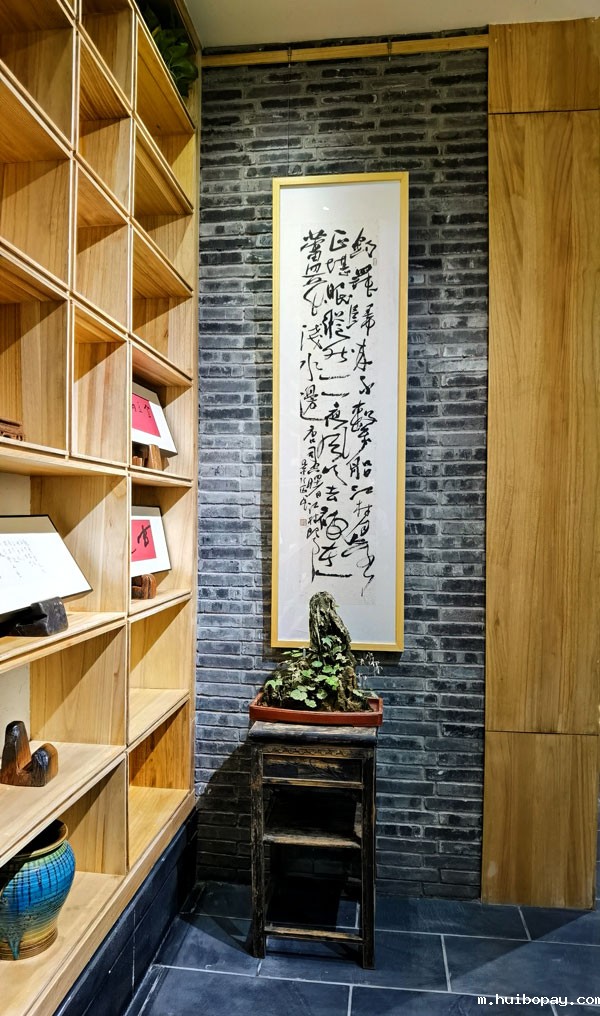 釣罷歸來不繫船江村月落
正堪眠縱然一夜風吹去祇在
蘆花淺水邊 唐司空曙江村即
m.huibopay.com